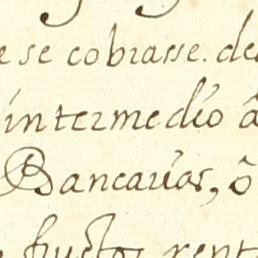 e se cobrasse. de
intermedio â
Bancarias, ô
fructos rent